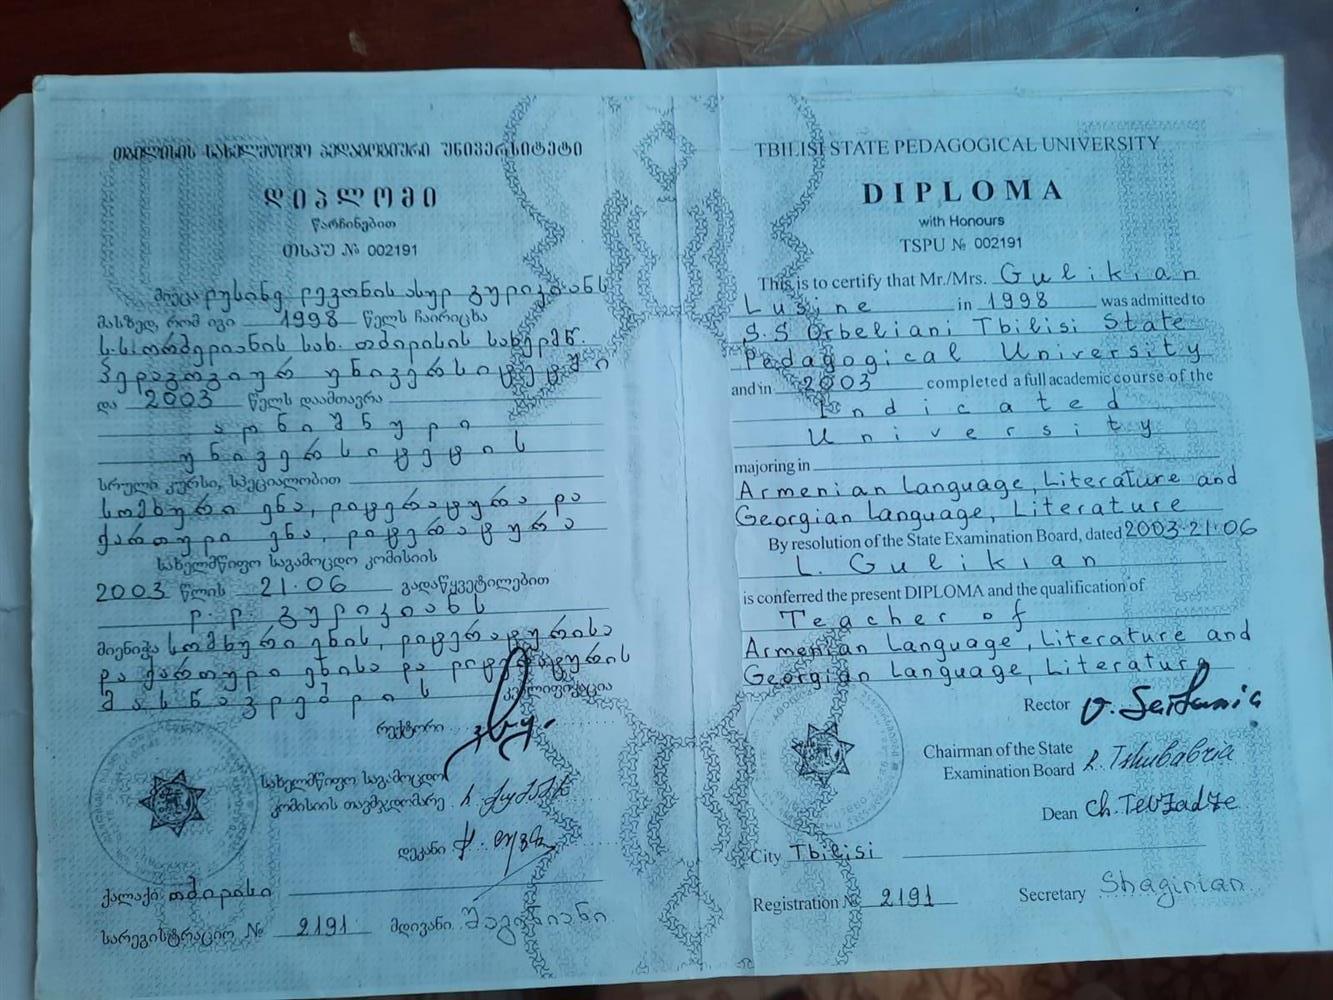 თბილისის სახელმწიფო პედაგოგიური უნივერსიტეტი
დიპლომი
წარჩინებით
თსპუ № 002191
მიეცა ლუსინე ლევონის ასულ გულიკიანს
მასზედ, რომ იგი 1998 წელს ჩაირიცხა
ს.ს.ორბელიანის სახ. თბილისის სახელმწ.
პედაგოგიურ უნივერსიტეტში
და 2003 წელს დაამთავრა
აღნიშნული
უნივერსიტეტის
სრული კურსი, სპეციალობით
სომხური ენა, ლიტერატურა და
ქართული ენა, ლიტერატურა
სახელმწიფო საგამოცდო კომისიის
2003 წლის 21.06 გადაწყვეტილებით
ლ. ლ. გულიკიანს
მიენიჭა სომხური ენის, ლიტერატურისა
და ქართული ენისა და ლიტერატურის
მასწავლებლის კვალიფიკაცია
რექტორი
სახელმწიფო საგამოცდო
კომისიის თავმჯდომარე
დეკანი
ქალაქი თბილისი
სარეგისტრაციო № 2191 მდივანი შაგინიანი
TBILISI STATE PEDAGOGICAL UNIVERSITY
DIPLOMA
with Honours
TSPU № 002191
This is to certify that Mr./Mrs. Gulikian
Lusine in 1998 was admitted to
S.S Orbeliani Tbilisi State
Pedagogical University
and in 2003 completed a full academic course of the
Indicated
University
majoring in
Armenian Language, Literature and
Georgian Language, Literature
By resolution of the State Examination Board, dated 2003-21.06
L. Gulikian
is conferred the present DIPLOMA and the qualification of
Teacher of
Armenian Language, Literature and
Georgian Language, Literature
Rector
Chairman of the State
Examination Board R. Tshubabria
Dean Ch. Tevzadze
City Tbilisi
Registration № 2191 Secretary Shaginian